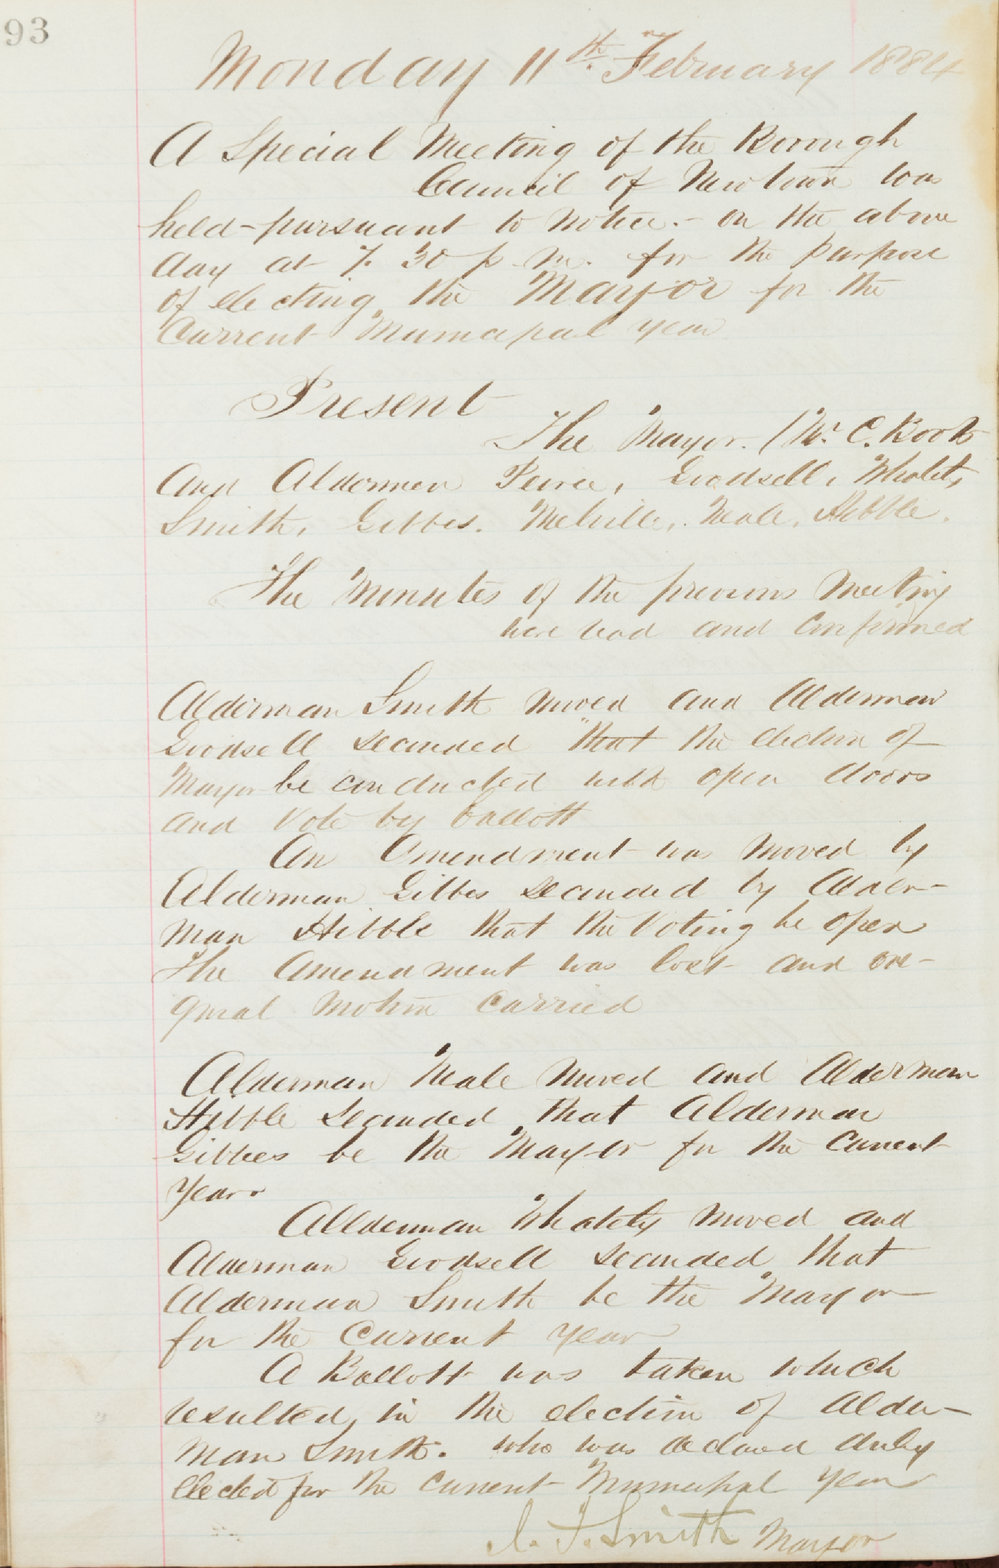 93
Monday 11th. February 1884
A Special Meeting of the Borough
Council of Newtown was
held - pursuant to notice. - on the above
day at 7. 30 p. m. for the purpose
of electing the Mayor for the
Current Municipal year
Present
The Mayor. (Mr. C. Boots
and Aldermen Peirce, Goodsell, Whately,
Smith, Gibbes. Melville, Neale, Hibble.
The Minutes of the previous Meeting
were read and confirmed
Alderman Smith moved and Alderman
Goodsell seconded "that the election of
Mayor be conducted with open doors
and Vote by ballott
An Amendment was moved by
Alderman Gibbes seconded by Alder-
man Hibble that the Voting be open
The Amendment was lost and ori-
ginal Motion carried
Alderman Neale moved and Alderman
Hibble Seconded that Alderman
Gibbes be the Mayor for the Current
Year.
Allderman Whately moved and
Alderman Goodsell seconded that
Alderman Smith be the Mayor
for the Current year
A Ballott was taken which
resulted, in the election of Alder-
man Smith. who was declared duly
elected for the current Municipal year
Smith Mayor